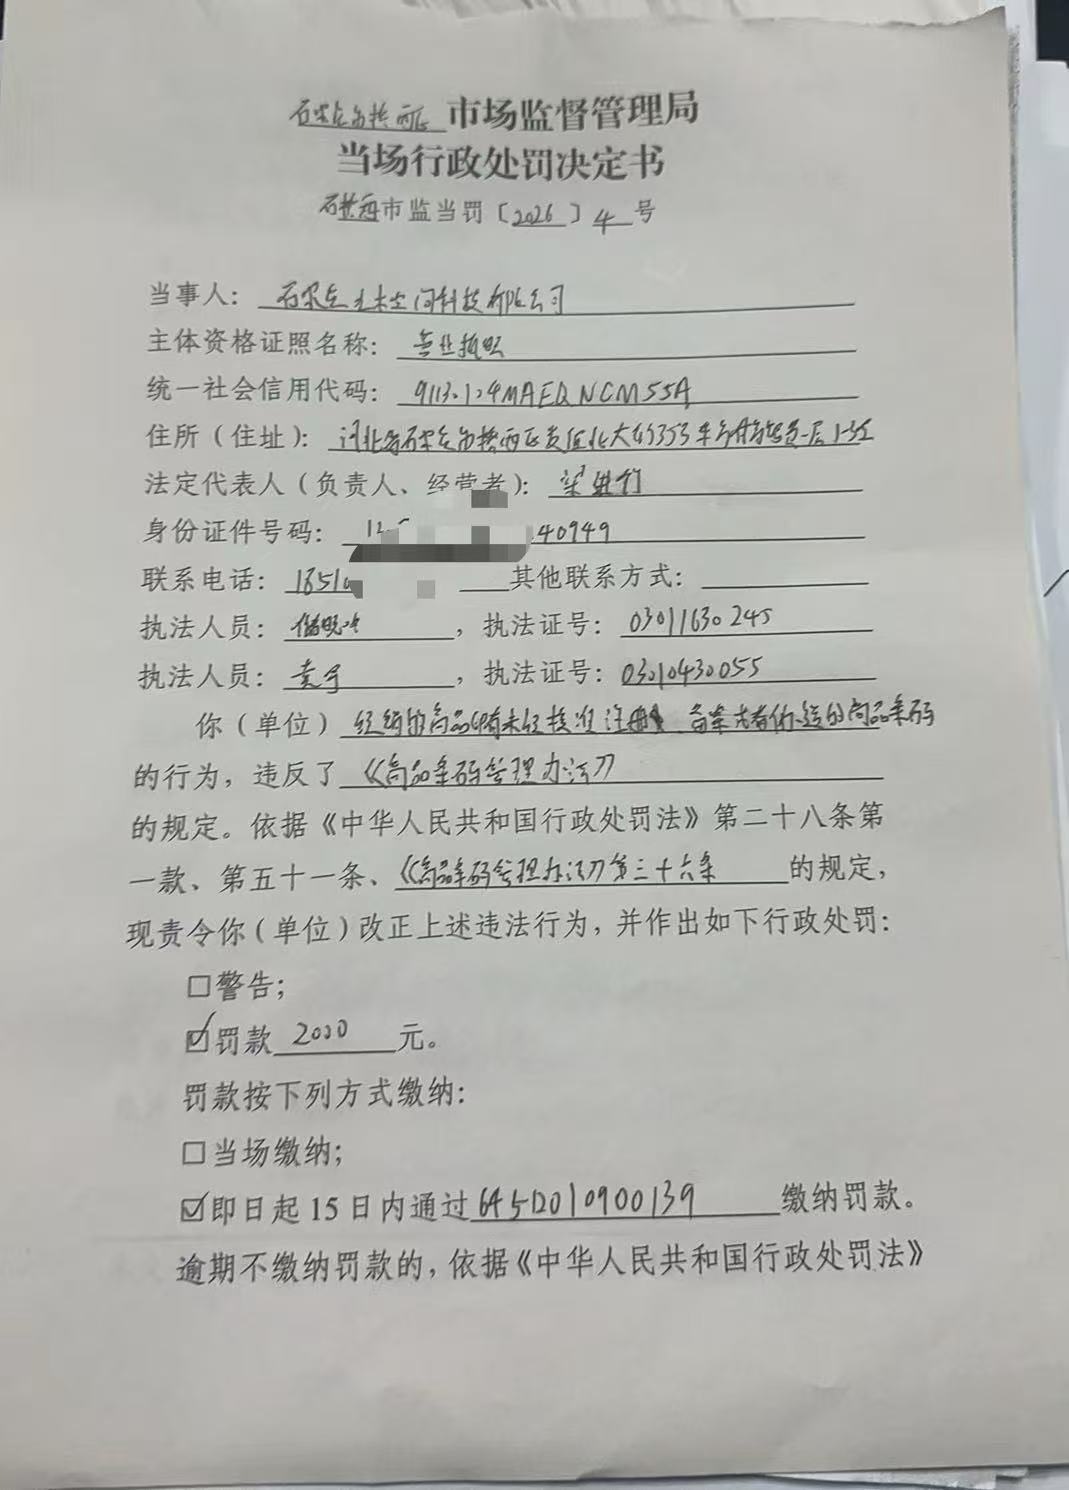 石家庄市桥西区市场监督管理局
当场行政处罚决定书
石桥西市监当罚〔2026〕4号
当事人：石家庄土木空间科技有限公司
主体资格证照名称：营业执照
统一社会信用代码：91130104MAEQNCM55A
住所（住址）：河北省石家庄市桥西区友谊北大街353号一层1-32
法定代表人（负责人、经营者）：梁
身份证件号码：40949
联系电话：18510 其他联系方式：
执法人员：，执法证号：03011630245
执法人员：袁宇，执法证号：03010430055
你（单位）经销的商品印有未经核准注册、备案或者伪造的商品条码
的行为，违反了《商品条码管理办法》
的规定。依据《中华人民共和国行政处罚法》第二十八条第
一款、第五十一条、《商品条码管理办法》第三十六条的规定，
现责令你（单位）改正上述违法行为，并作出如下行政处罚：
□警告；
☑罚款2000元。
罚款按下列方式缴纳：
□当场缴纳；
☑即日起15日内通过645D010900139缴纳罚款。
逾期不缴纳罚款的，依据《中华人民共和国行政处罚法》